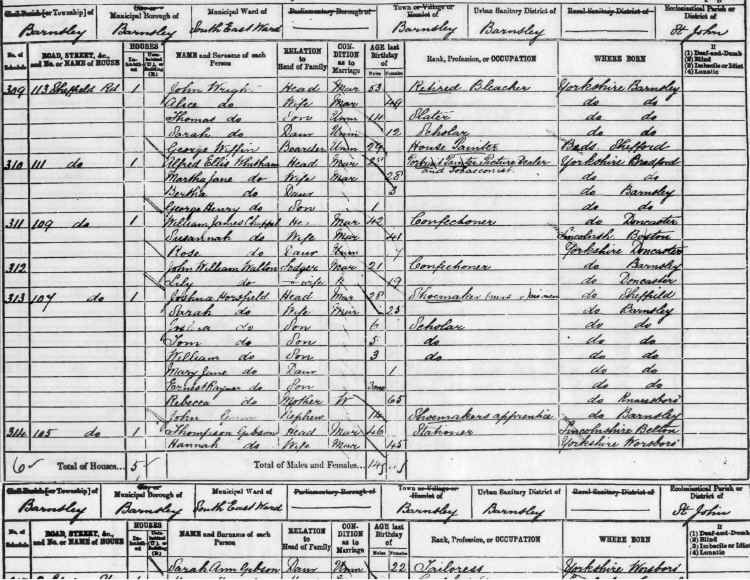 Civil Parish [or Township] of City or Municipal Borough of Municipal Ward of Parliamentary Borough of Town or Village or Hamlet of Urban Sanitary District of Rural Sanitary District of Ecclesiastical Parish or District of
Barnsley Barnsley South East Ward Barnsley Barnsley St John
No. of Schedule ROAD, STREET, &c., and No. or NAME of HOUSE HOUSES Inhabited Uninhabited (U.), or Building (B.) NAME and Surname of each Person RELATION to Head of Family CONDITION as to Marriage AGE last Birthday of Males Females Rank, Profession, or OCCUPATION WHERE BORN If
(1) Deaf-and-Dumb
(2) Blind
(3) Imbecile or Idiot
(4) Lunatic
309 113 Sheffield Rd 1 John Wright Head Mar 53 Retired Bleacher Yorkshire Barnsley
Alice do Wife Mar 49 do do
Thomas do Son Unm Slater do do
Sarah do Daur Unm 12 Scholar do do
George Boarder Unm 24 House Painter Beds Shefford
310 111 do 1 Alfred Ellis Head Mar Portrait Painter Picture Dealer and Tobacconist Yorkshire Bradford
Martha Jane do Wife Mar 28 do do
Bertha do Daur 3 do Barnsley
George Henry do Son 1 do do
311 109 do 1 William James Mar 42 Confectioner do Doncaster
Susannah do Wife Mar 41 Lincolnsh Boston
Rose do Daur Unm 7 Yorkshire Doncaster
312 John William Walton Lodger Mar 21 Confectioner do Barnsley
Lily do wife 19 do Doncaster
313 107 do 1 Joshua Horsfield Head Mar 28 Shoemaker do Sheffield
Sarah do Wife Mar 25 do Barnsley
do Son 6 Scholar do do
Tom do Son 5 do do do
William do Son 3 do do do
Mary Jane do Daur 1 do do
Ernest do Son do do
Rebecca do Mother W 65 do Knaresboro'
John Nephew 14 Shoemakers apprentice do Barnsley
314 105 do 1 Thompson Gibson Head Mar 46 Stationer Lincolnshire Belton
Hannah do Wife Mar 45 Yorkshire Worsboro'
6 Total of Houses... 5 Total of Males and Females... 14
Civil Parish [or Township] of City or Municipal Borough of Municipal Ward of Parliamentary Borough of Town or Village or Hamlet of Urban Sanitary District of Rural Sanitary District of Ecclesiastical Parish or District of
Barnsley Barnsley South East Ward Barnsley Barnsley St John
No. of Schedule ROAD, STREET, &c., and No. or NAME of HOUSE HOUSES Inhabited Uninhabited (U.), or Building (B.) NAME and Surname of each Person RELATION to Head of Family CONDITION as to Marriage AGE last Birthday of Males Females Rank, Profession, or OCCUPATION WHERE BORN If
(1) Deaf-and-Dumb
(2) Blind
(3) Imbecile or Idiot
(4) Lunatic
Sarah Ann Gibson Daur Unm 22 Tailoress Yorkshire Worsboro'